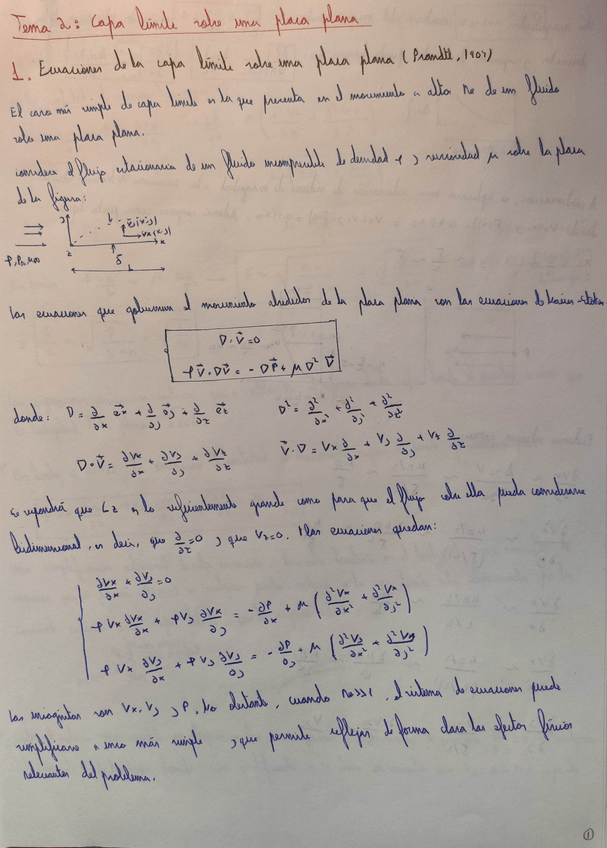 Tema 2: Capa límite sobre una placa plana
1. Ecuaciones de la capa límite sobre una placa plana (Prandtl, 1904)
El caso más simple de capa límite es la que presenta en el movimiento a alto Re de un fluido
sobre una placa plana.
considera el flujo estacionario de un fluido incompresible de densidad ρ y viscosidad μ sobre la placa
de la figura:
y v⃗(x,y)
vx(x,y)
z δ x
L
Las ecuaciones que gobiernan el movimiento alrededor de la placa plana son las ecuaciones de Navier-Stokes
D·V⃗=0
ρV⃗·DV⃗ = -DP⃗ + μD² V⃗
donde: D = ∂/∂x e⃗x + ∂/∂y e⃗y + ∂/∂z e⃗z D² = ∂²/∂x² + ∂²/∂y² + ∂²/∂z²
D·V⃗ = ∂Vx/∂x + ∂Vy/∂y + ∂Vz/∂z V⃗·D = Vx ∂/∂x + Vy ∂/∂y + Vz ∂/∂z
se supondrá que Lz es lo suficientemente grande como para que el flujo sobre ella pueda considerarse
bidimensional, es decir, que ∂/∂z=0 y que Vz=0. las ecuaciones quedan:
∂Vx/∂x + ∂Vy/∂y = 0
ρ Vx ∂Vx/∂x + ρVy ∂Vx/∂y = -∂P/∂x + μ (∂²Vx/∂x² + ∂²Vx/∂y²)
ρ Vx ∂Vy/∂x + ρVy ∂Vy/∂y = -∂P/∂y + μ (∂²Vy/∂x² + ∂²Vy/∂y²)
Las incógnitas son Vx, Vy y P. No obstante, cuando Re>>1, el sistema de ecuaciones puede
simplificarse a uno más simple y que permite reflejar de forma clara los efectos físicos
relevantes del problema.
1